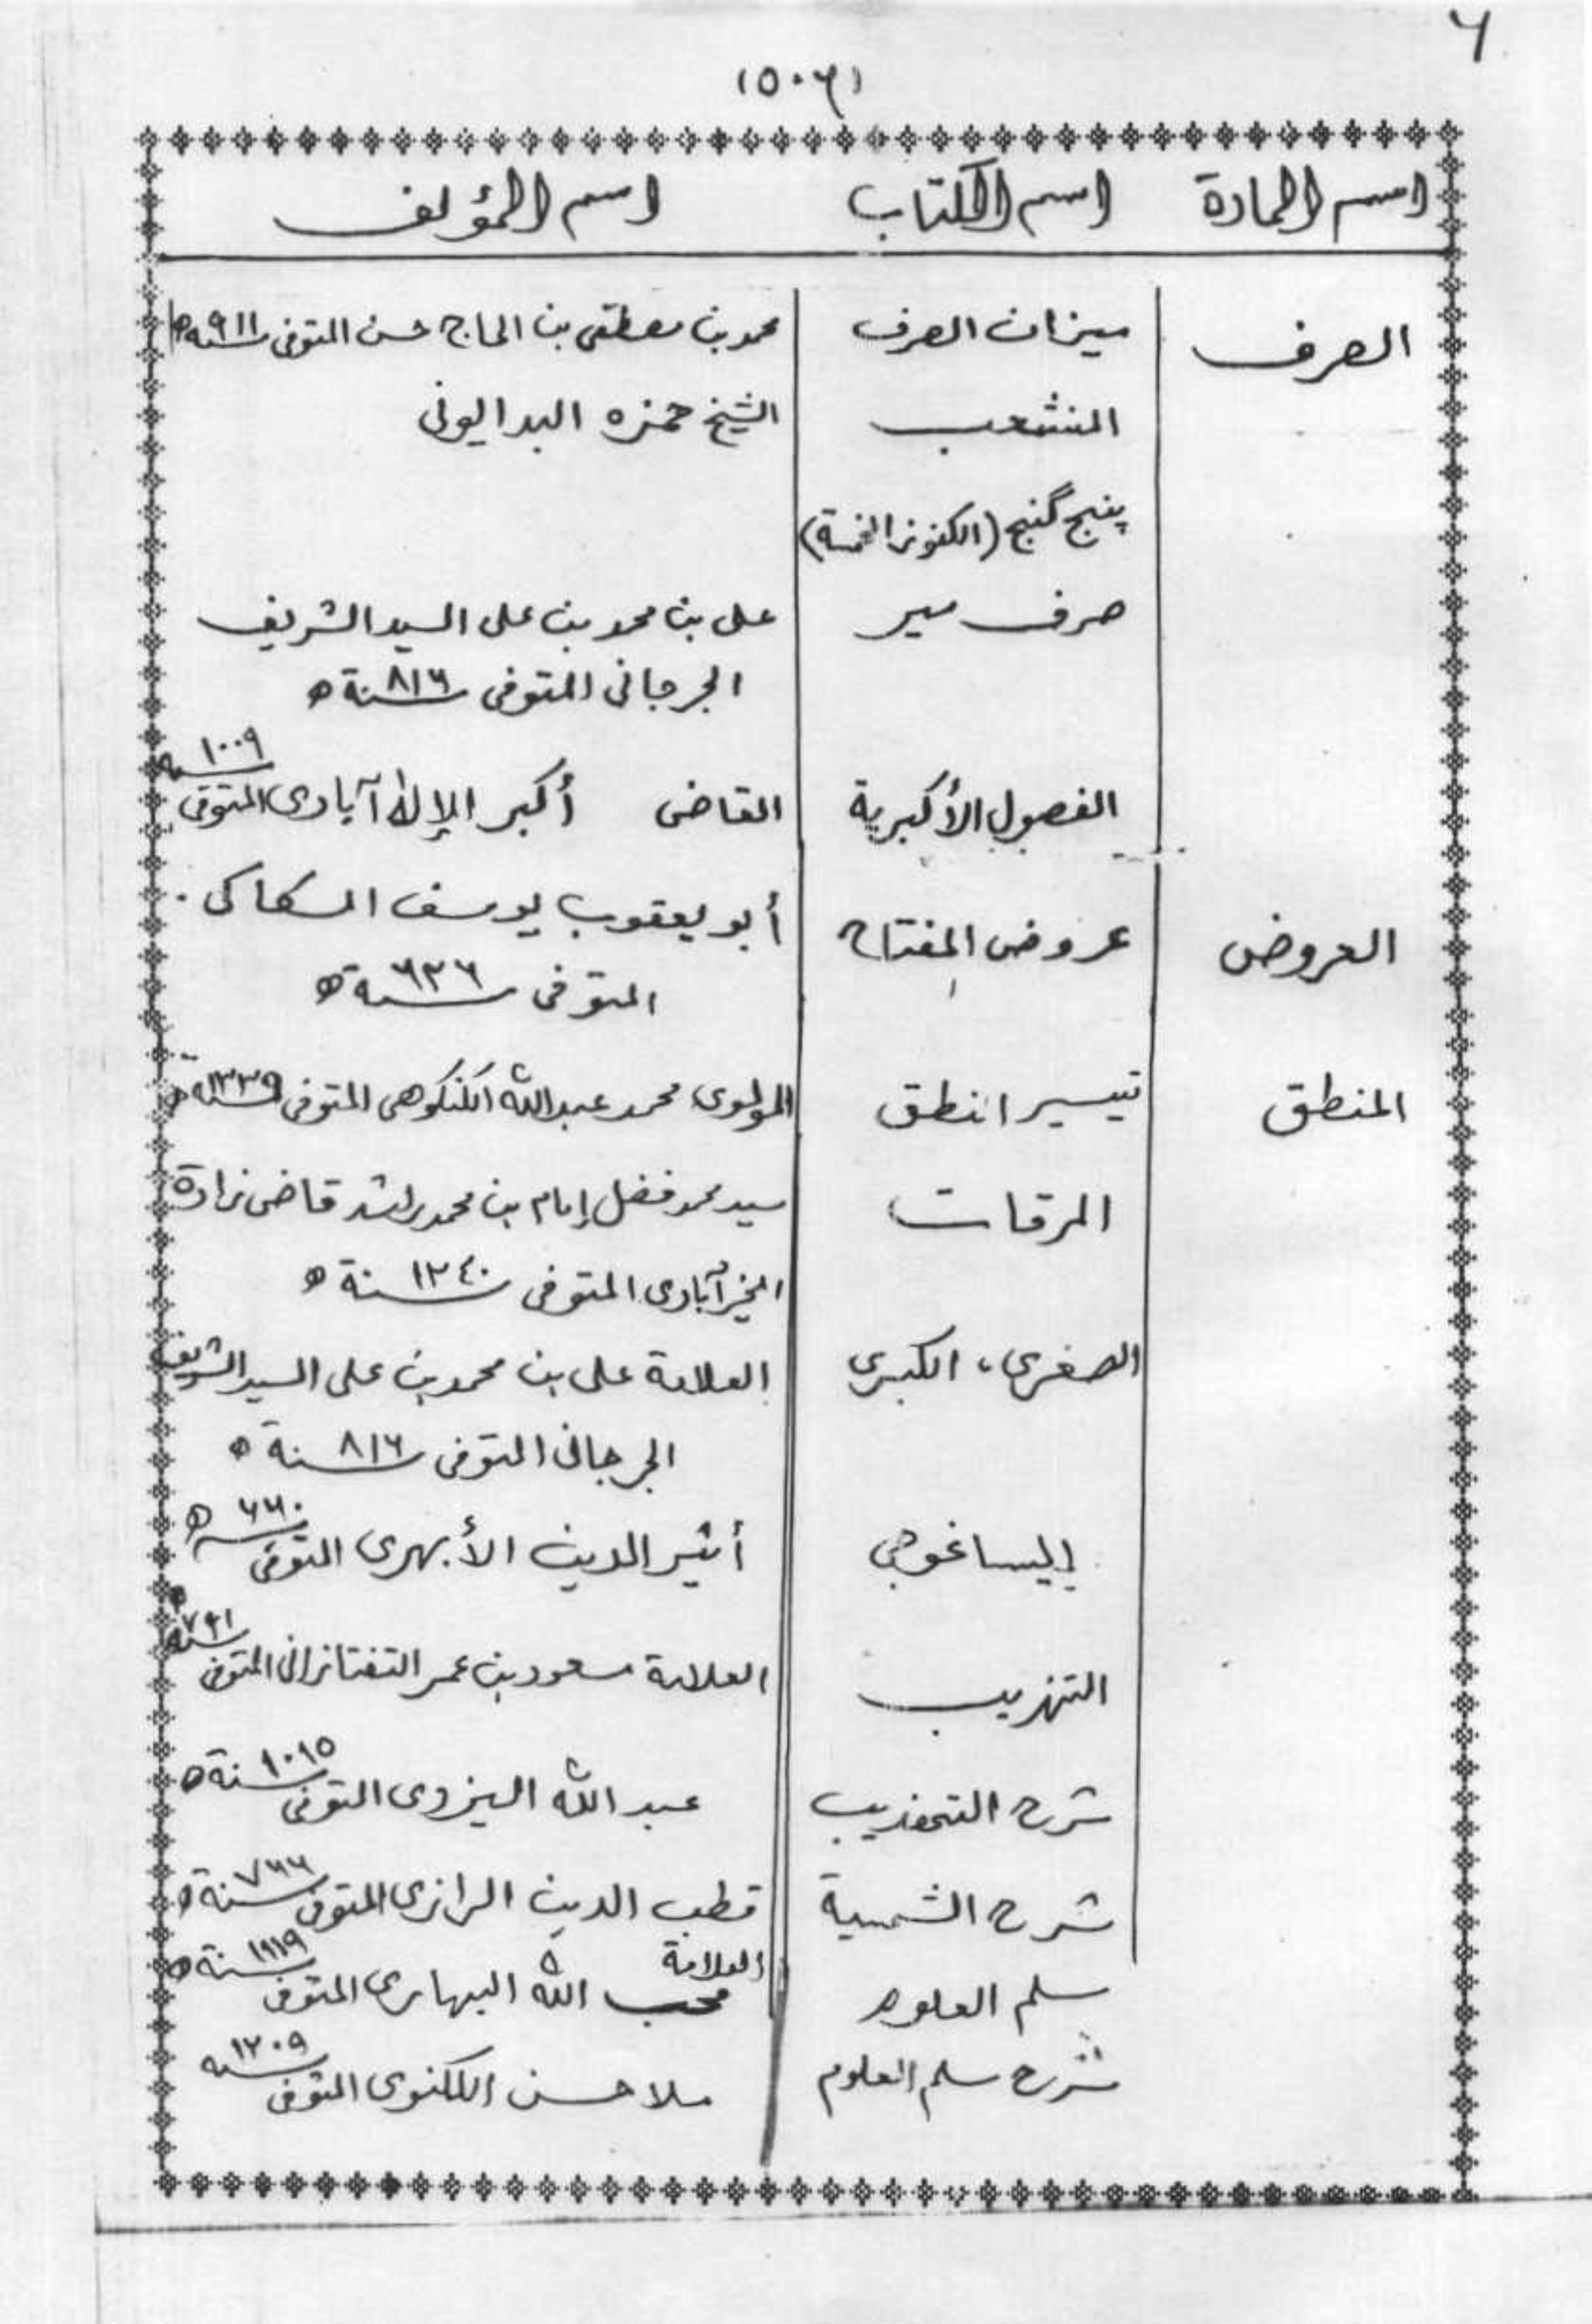 ٦
(٥٠٦)
اسم المادة اسم الكتاب اسم المؤلف
الصرف ميزان الصرف محمد بن مصطفى بن الحاج حسن المتوفى سنة ٩١١ه
المنشعب الشيخ حمزه البدايونى
پنج گنج (الكنوز الخمسة)
صرف مير على بن محمد بن على السيد الشريف
الجرجانى المتوفى سنة ٨١٦ ه
الفصول الأكبرية القاضى أكبر الإله آبادى المتوفى ١٠٠٩
العروض عروض المفتاح أبو يعقوب يوسف السكاكى
المتوفى سنة ٦٢٦ ه
المنطق تيسير انطق المولوى محمد عبد الله الكنكوهى المتوفى سنة ١٣٣٩ ه
المرقات سيد محمد فضل إمام بن محمد راشد قاضى زادة
الخير آبادى المتوفى سنة ١٢٤٠ ه
الصغرى، الكبرى العلامة على بن محمد بن على السيد الشريف
الجرجانى المتوفى سنة ٨١٦ ه
إيساغوجي أثير الدين الأبهرى المتوفى ٦٦٠ ه
التهذيب العلامة مسعود بن عمر التفتازانى المتوفى سنة ٧٩١ ه
شرح التهذيب عبد الله اليزدى المتوفى سنة ١٠١٥ ه
شرح الشمسية قطب الدين الرازى المتوفى سنة ٧٦٦ ه
سلم العلوم العلامة محب الله البهارى المتوفى سنة ١١١٩ ه
شرح سلم العلوم ملا حسن اللكنوى المتوفى ١٢٠٩